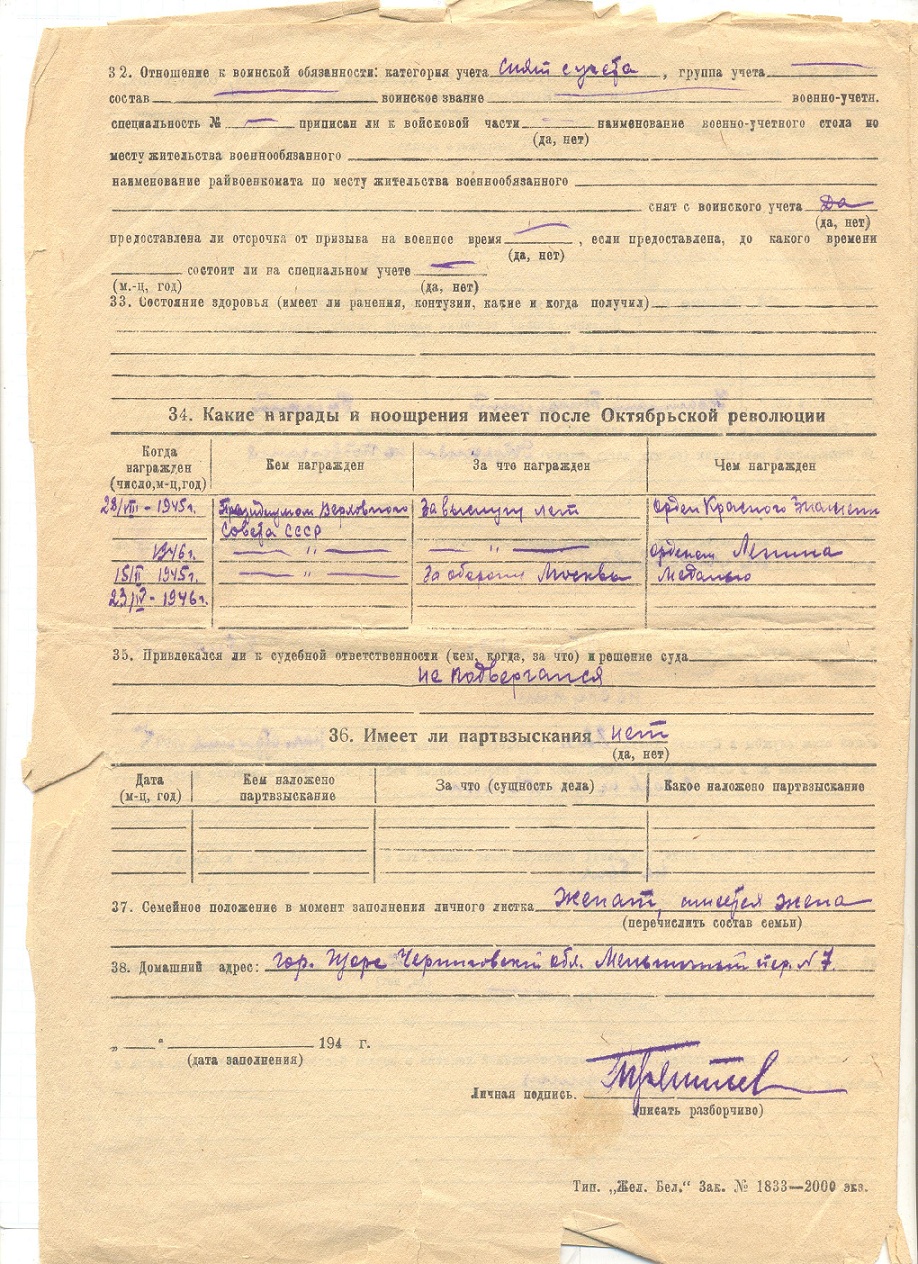 32. Отношение к воинской обязанности: категория учета снят с учета, группа учета
состав воинское звание военно-учетн.
специальность № — приписан ли к войсковой части — наименование военно-учетного стола по
(да, нет)
месту жительства военнообязанного
наименование райвоенкомата по месту жительства военнообязанного
снят с воинского учета Да
(да, нет)
предоставлена ли отсрочка от призыва на военное время — , если предоставлена, до какого времени
(да, нет)
состоит ли на специальном учете —
(м.-ц, год) (да, нет)
33. Состояние здоровья (имеет ли ранения, контузии, какие и когда получил)
34. Какие награды и поощрения имеет после Октябрьской революции
Когда награжден (число,м-ц,год) Кем награжден За что награжден Чем награжден
28/VIII - 1945г. Президиумом Верховного За выслугу лет Орден Красного Знамени
Совета СССР
1946г. — " — — " — Орденом Ленина
15/II 1945г. — " — За оборону Москвы Медалью
23/IV - 1946г.
35. Привлекался ли к судебной ответственности (кем, когда, за что) и решение суда
не подвергался
36. Имеет ли партвзыскания нет
(да, нет)
Дата (м-ц, год) Кем наложено партвзыскание За что (сущность дела) Какое наложено партвзыскание
37. Семейное положение в момент заполнения личного листка женат, имеется жена
(перечислить состав семьи)
38. Домашний адрес: гор. Щорс Черниговской обл. пер. № 7
„—“ 194 г.
(дата заполнения)
Личная подпись.
(писать разборчиво)
Тип. „Жел. Бел.“ Зак. № 1833—2000 экз.